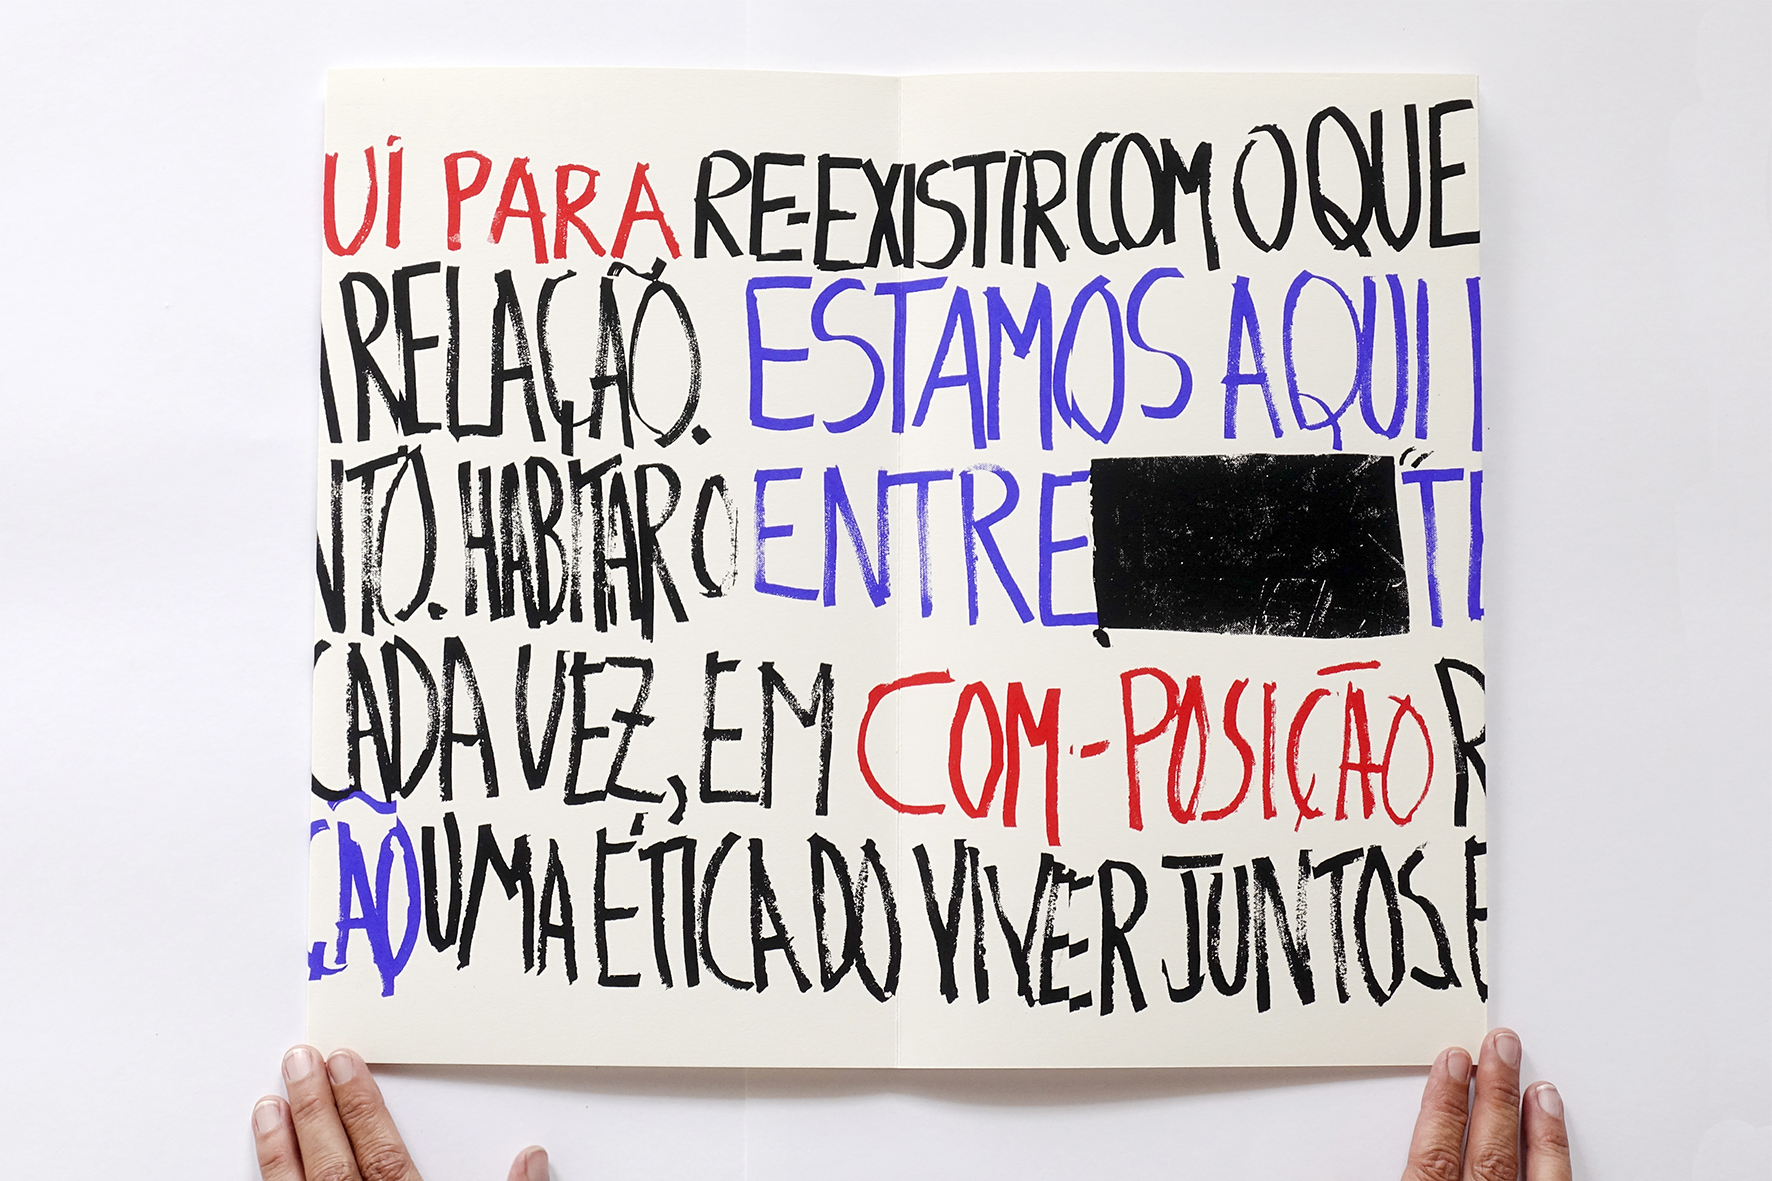 UI PARA RE-EXISTIR COM O QUE
RELAÇÃO. ESTAMOS AQUI
NTO. HABITAR O ENTRE
CADA VEZ, EM COM-POSIÇÃO R
ÇÃO UMA ÉTICA DO VIVER JUNTOS E